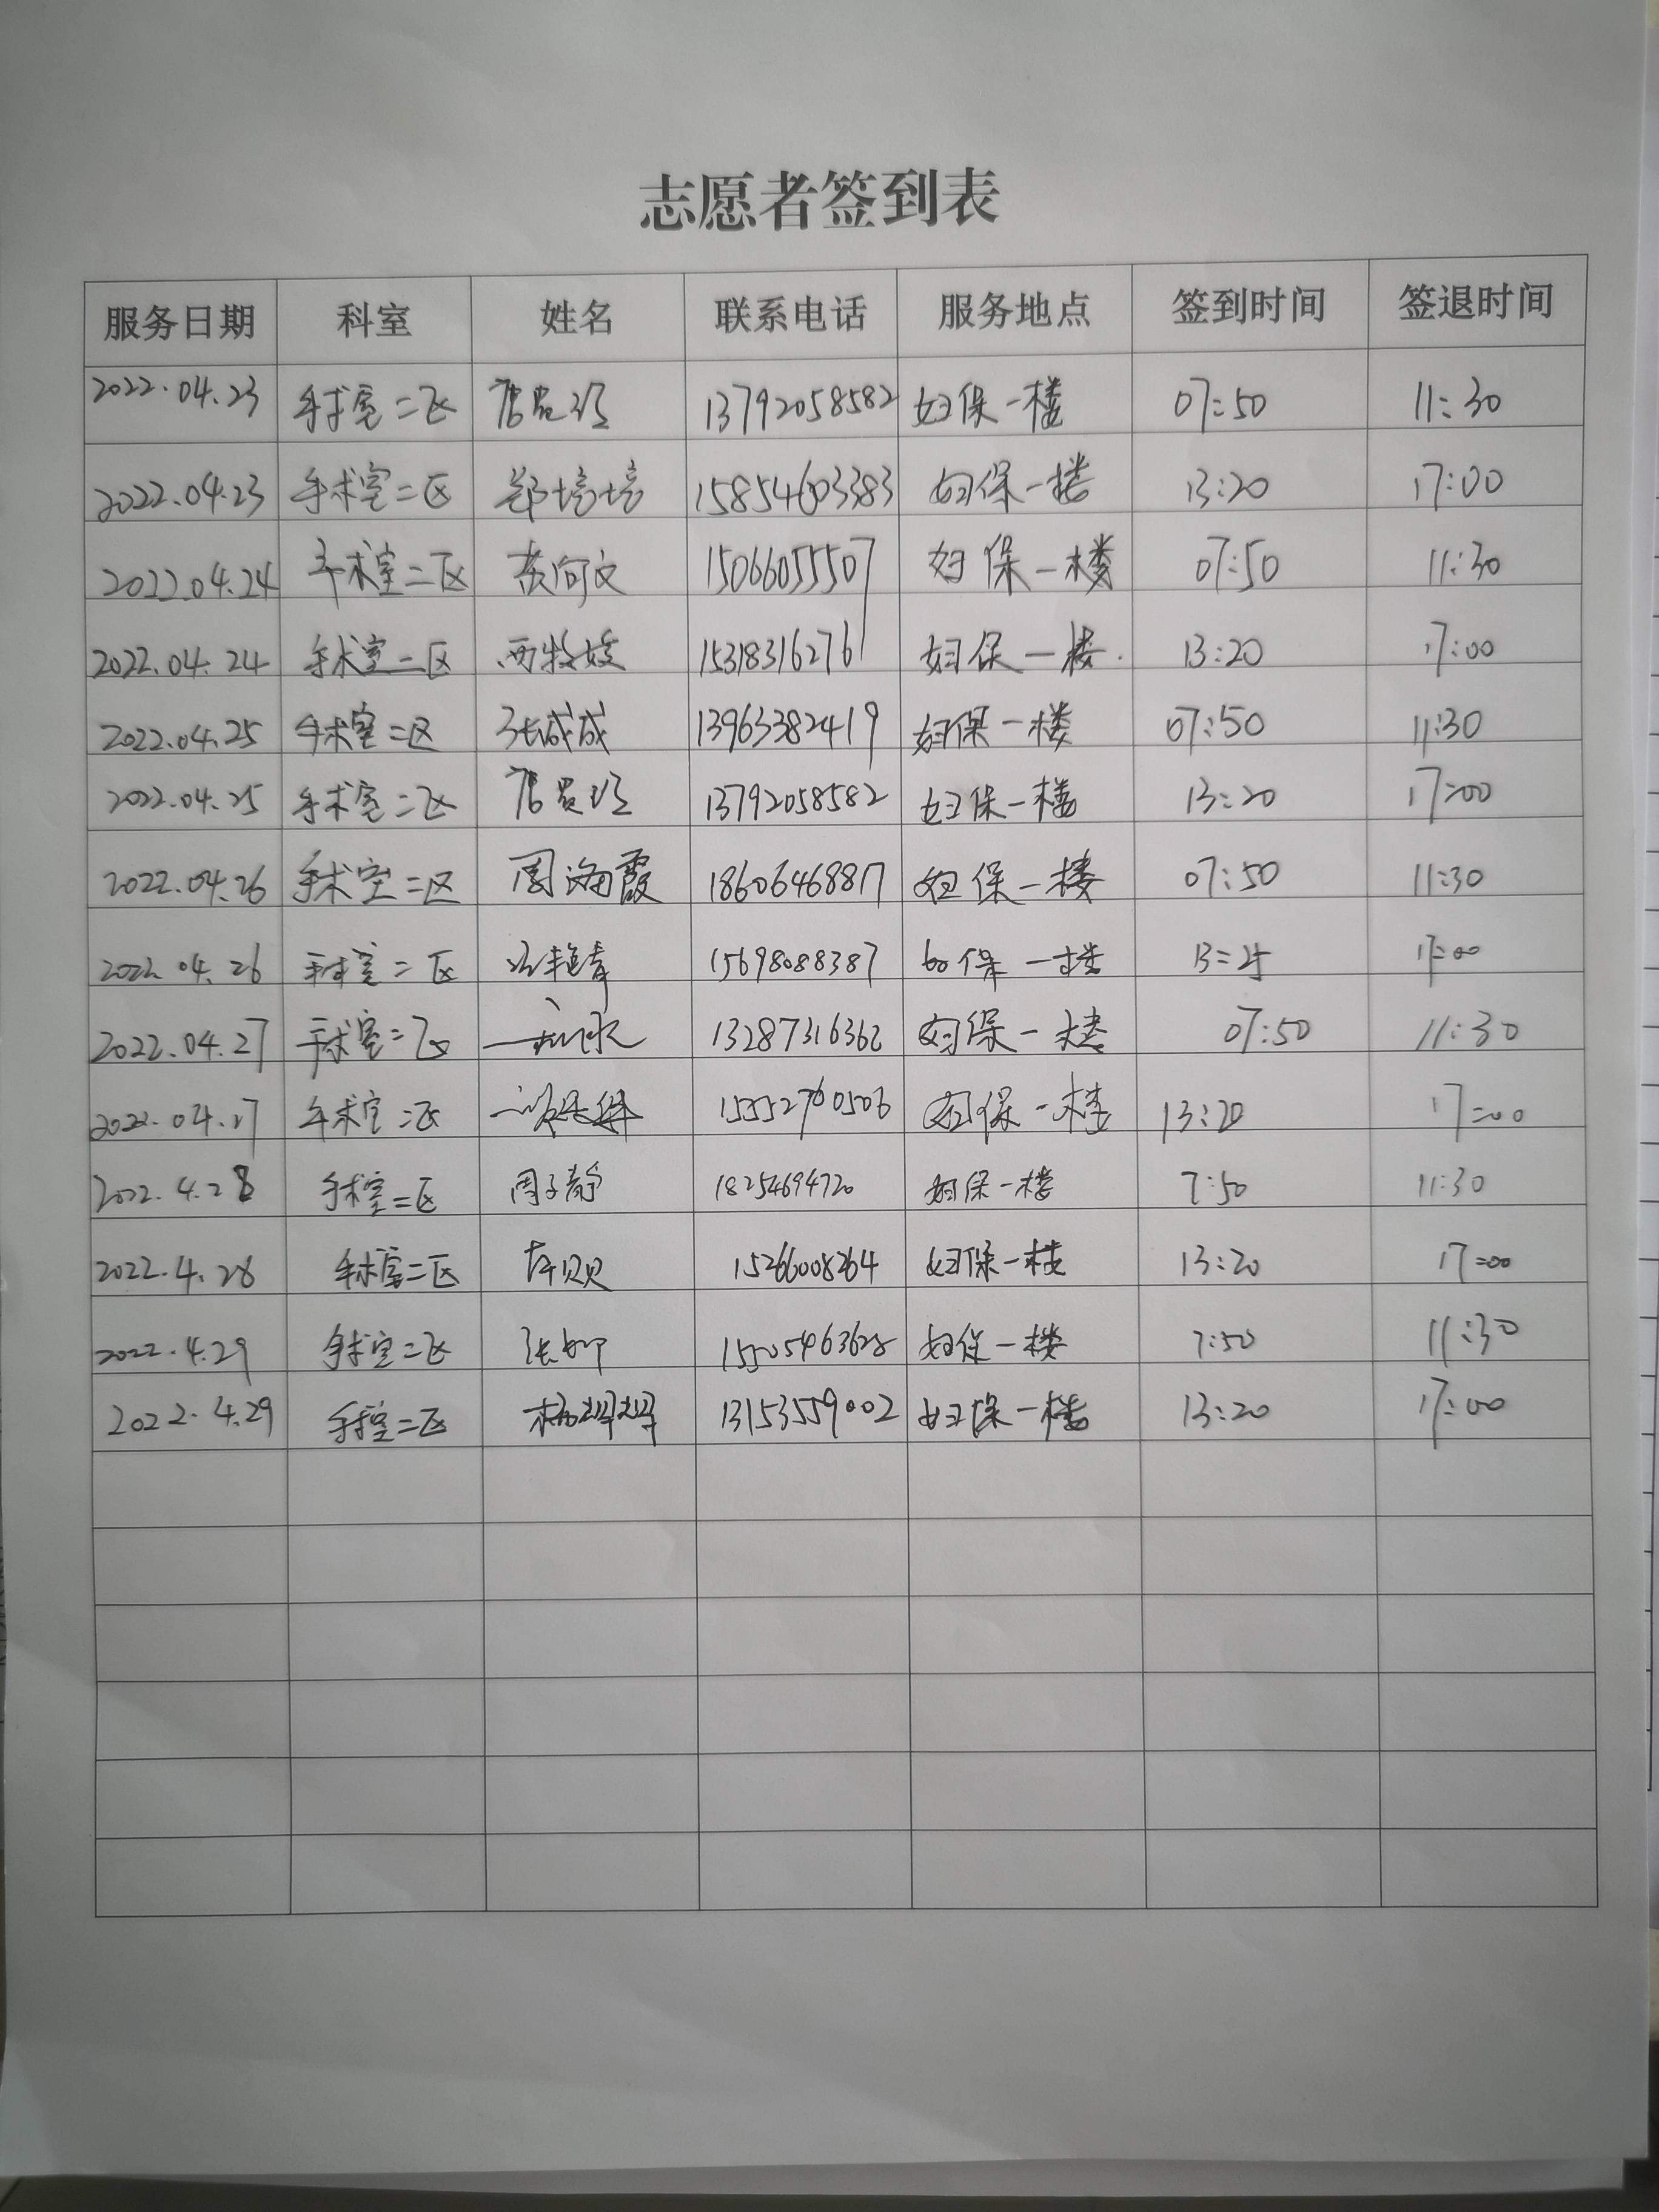 志愿者签到表
服务日期 科室 姓名 联系电话 服务地点 签到时间 签退时间
2022.04.23 手术室二区 13792058582 妇保一楼 07:50 11:30
2022.04.23 手术室二区 郑培培 15854603383 妇保一楼 13:20 17:00
2022.04.24 手术室二区 15066055507 妇保一楼 07:50 11:30
2022.04.24 手术室二区 15318316276 妇保一楼 13:20 17:00
2022.04.25 手术室二区 张成成 13963382419 妇保一楼 07:50 11:30
2022.04.25 手术室二区 13792058582 妇保一楼 13:20 17:00
2022.04.26 手术室二区 周海霞 18606468817 妇保一楼 07:50 11:30
2022.04.26 手术室二区 15698088387 妇保一楼 17:00
2022.04.27 手术室二区 13287316362 妇保一楼 07:50 11:30
2022.04.27 手术室二区 妇保一楼 13:20 17:00
2022.4.28 手术室二区 周子静 18254694720 妇保一楼 7:50 11:30
2022.4.28 手术室二区 15266008264 妇保一楼 13:20 17:00
2022.4.29 手术室二区 妇保一楼 7:50 11:30
2022.4.29 手术室二区 13153559002 妇保一楼 13:20 17:00